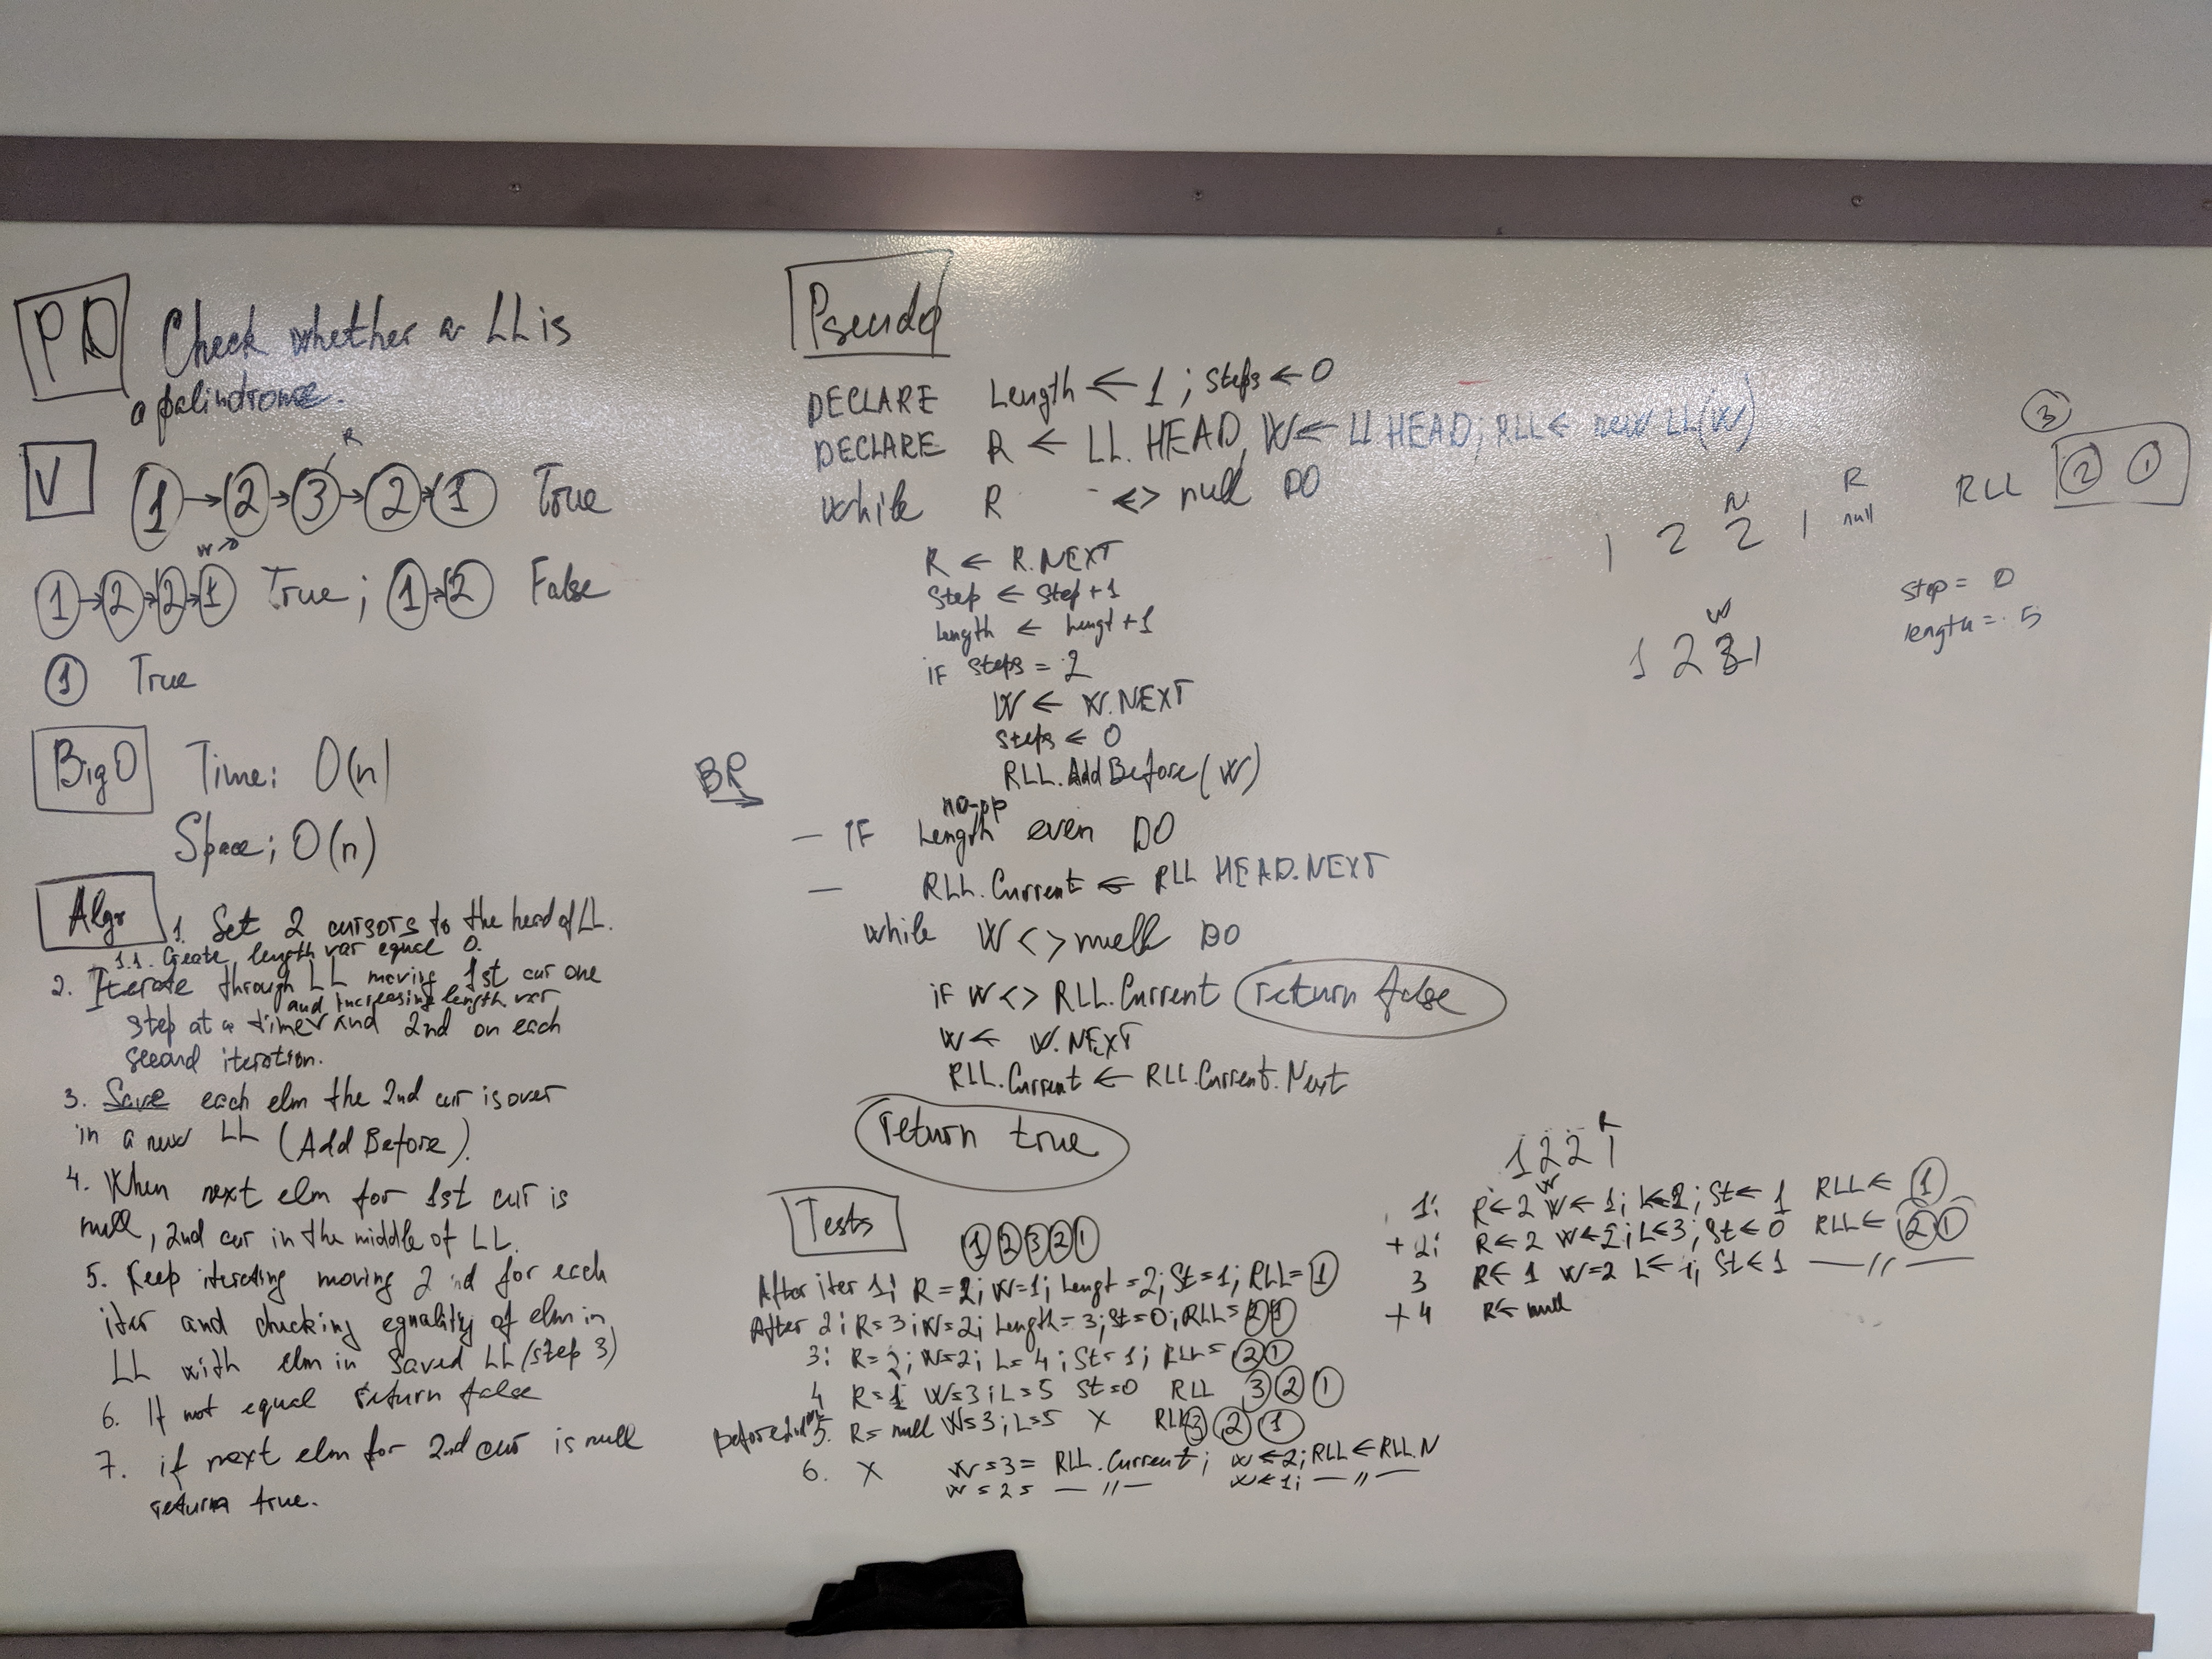 PD Check whether a LL is
a palindrome.
R
V 1 → 2 → 3 → 2 → 1 True
W →
1 → 2 → 2 → 1 True; 1 → 2 False
1 True
BigO Time: O(n)
Space; O(n)
Algo 1. Set 2 cursors to the head of LL.
1.1. Create length var equal 0.
2. Iterate through LL moving 1st cur one
and increasing length var
step at a time and 2nd on each
second iteration.
3. Save each elm the 2nd cur is over
in a new LL (Add Before).
4. When next elm for 1st cur is
null, 2nd cur in the middle of LL.
5. Keep iterating moving 2nd for each
iter and checking equality of elm in
LL with elm in saved LL (step 3)
6. If not equal return false
7. if next elm for 2nd cur is null
return true.
Pseudo
DECLARE Length ← 1; steps ← 0
DECLARE R ← LL.HEAD, W ← LL HEAD; RLL ← new LL(W)
While R <> null DO
R ← R.NEXT
Step ← Step+1
Length ← Lengt+1
IF steps = 2
W ← W.NEXT
Steps ← 0
RLL.AddBefore(W)
BP
no-pp
— IF Length even DO
— RLL.Current ← RLL HEAD.NEXT
while W <> null DO
if W <> RLL.Current return false
W ← W.NEXT
RLL.Current ← RLL.Current.Next
return true
Tests 1 2 3 2 1
After iter 1: R = 2; W=1; Lengt = 2; St=1; RLL= 1
After 2: R=3; W=2; Length=3; St=0; RLL= 2 1
3: R=2; W=2; L=4; St=1; RLL= 2 1
4 R=1 W=3; L=5 St=0 RLL 3 2 1
5. R= null W=3; L=5 X RLL 3 2 1
6. X W=3= RLL.Current; W←2; RLL←RLL.N
W=2= —//— W←1; —//—
3
R RLL 2 1
W
1 2 2 1 null
step = 0
length = 5
W
1 2 3 1
R
1 2 2 1
W
1: R←2 W←1; L←2; St←1 RLL← 1
+ 2: R←2 W←2; L←3; St←0 RLL← 2 1
3 R←1 W=2 L← St←1 —//—
+ 4 R← null